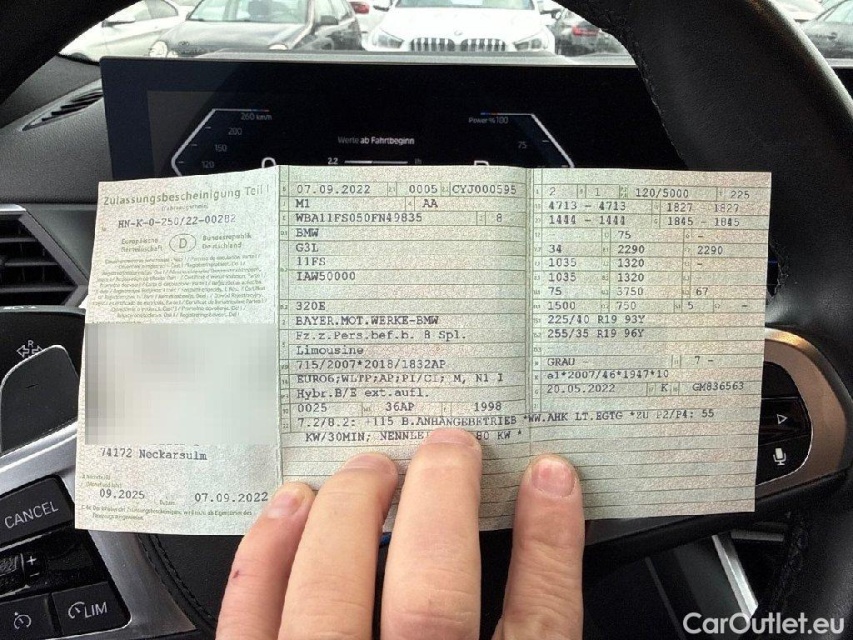 260 km/h
200
120
Power%100
75
Werte ab Fahrtbeginn
2.2
Zulassungsbescheinigung Teil I
HN-K-0-250/22-00282
Europäische Gemeinschaft D Bundesrepublik Deutschland
74172 Neckarsulm
09.2025 07.09.2022
07.09.2022 0005 CYJ000595
M1 AA
WBA11FS050FN49835 8
BMW
G3L
11FS
IAW50000
320E
BAYER.MOT.WERKE-BMW
Fz.z.Pers.bef.b. 8 Spl.
Limousine
715/2007*2018/1832AP
EURO6;WLTP;AP;PI/CI; M, N1 I
Hybr.B/E ext.aufl.
0025 36AP 1998
7.2/8.2: +115 B.ANHANGEBETRIEB *WW.AHK LT.EGTG *ZU P2/P4: 55
KW/30MIN; 80 KW *
2 1 120/5000 225
4713 - 4713 1827 - 1827
1444 - 1444 1845 - 1845
75
34 2290 2290
1035 1320 -
1035 1320 -
75 3750 67
1500 750 5 -
225/40 R19 93Y
255/35 R19 96Y
GRAU - 7 -
e1*2007/46*1947*10
20.05.2022 K GM836563
CANCEL
LIM
CarOutlet.eu